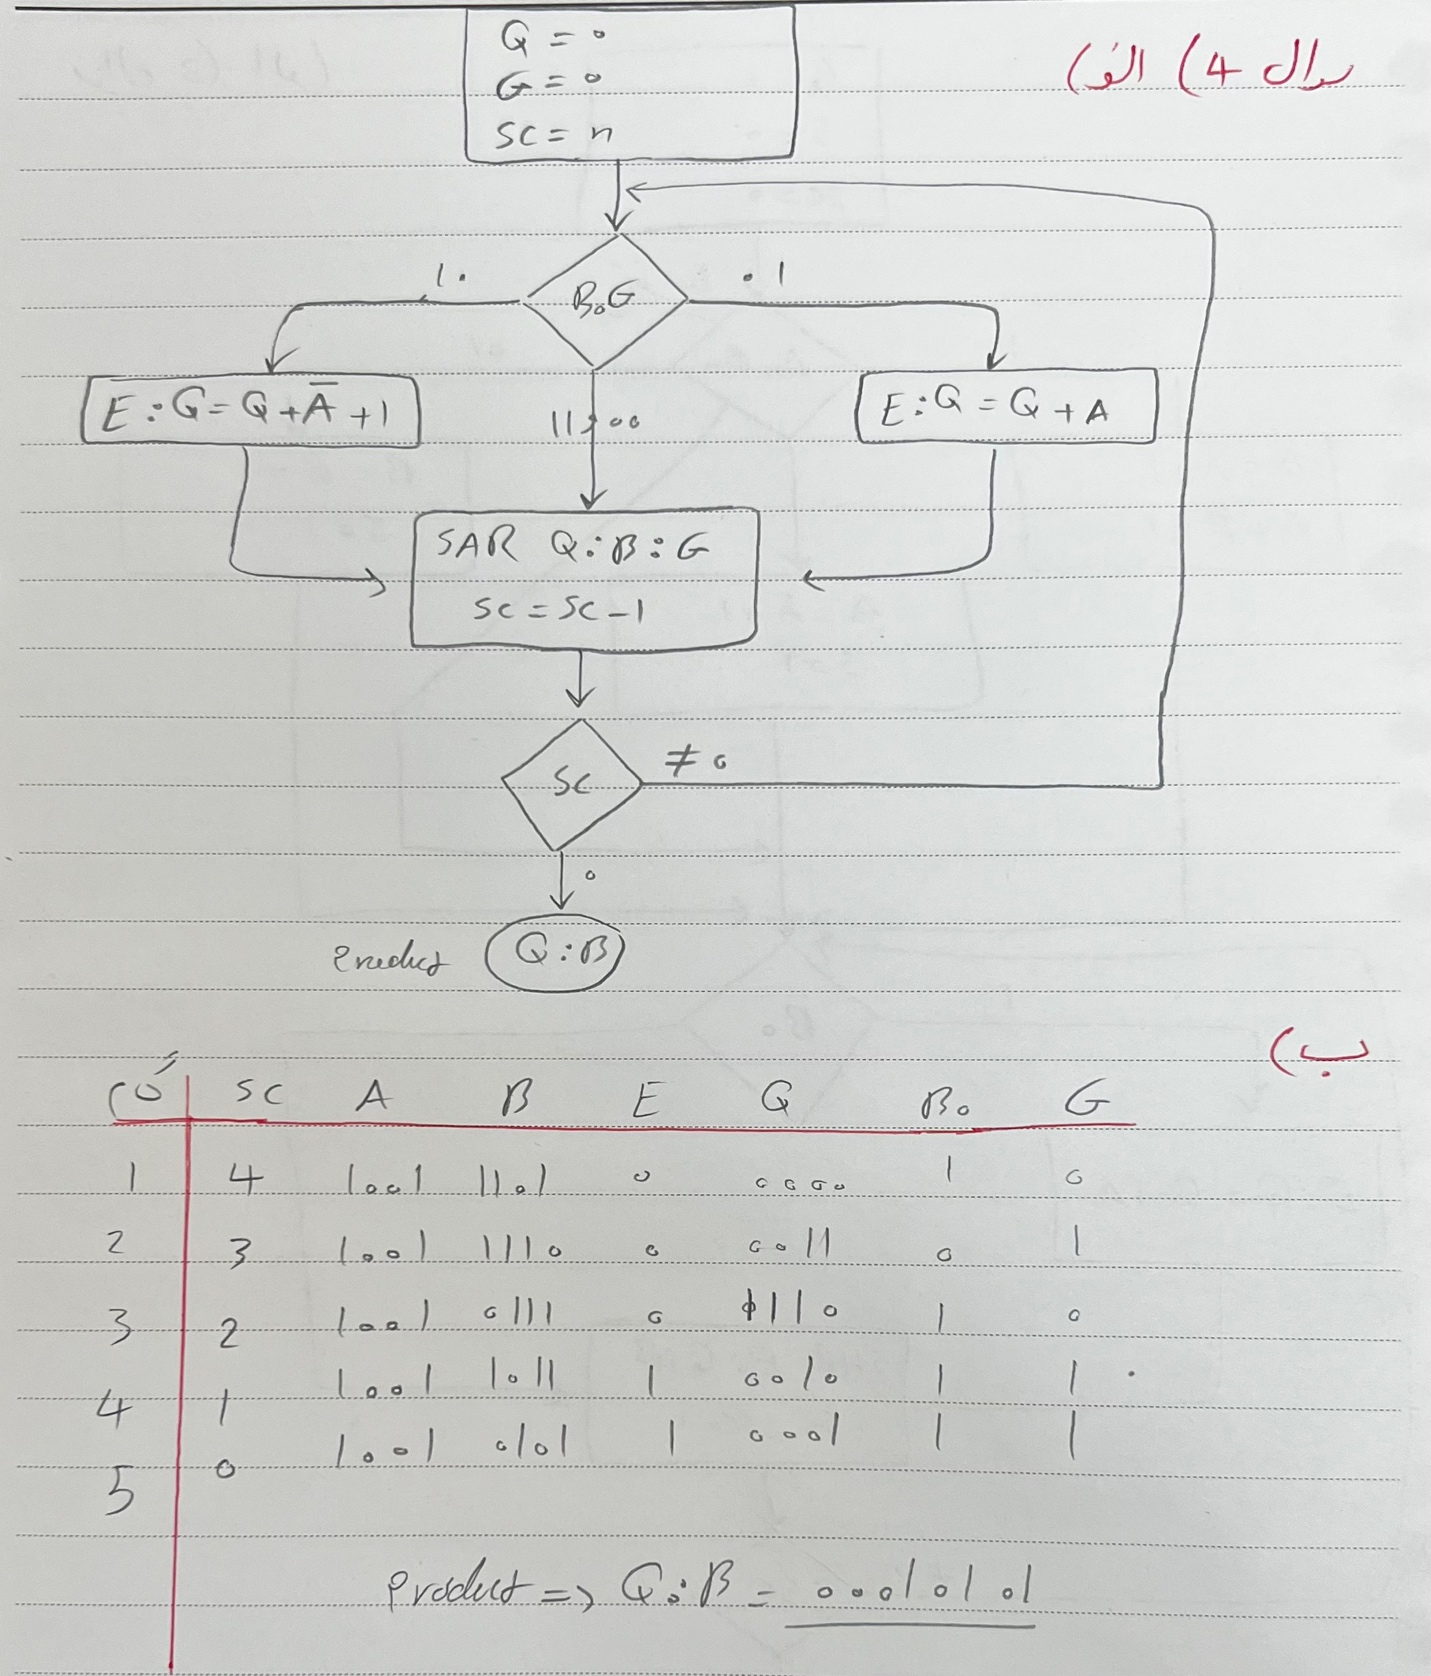 سوال 4) الف)
Q = 0
G = 0
SC = n
B₀G
10
01
11 و 00
E:G = Q + A̅ + 1
E:Q = Q + A
SAR Q:B:G
SC = SC - 1
SC
≠ 0
0
Product Q:B
ب)
SC A B E Q B₀ G
1 4 1001 1101 0 0000 1 0
2 3 1001 1110 0 0011 0 1
3 2 1001 0111 0 1110 1 0
4 1 1001 1011 1 0010 1 1
5 0 1001 0101 1 0001 1 1
Product => Q:B = 00010101